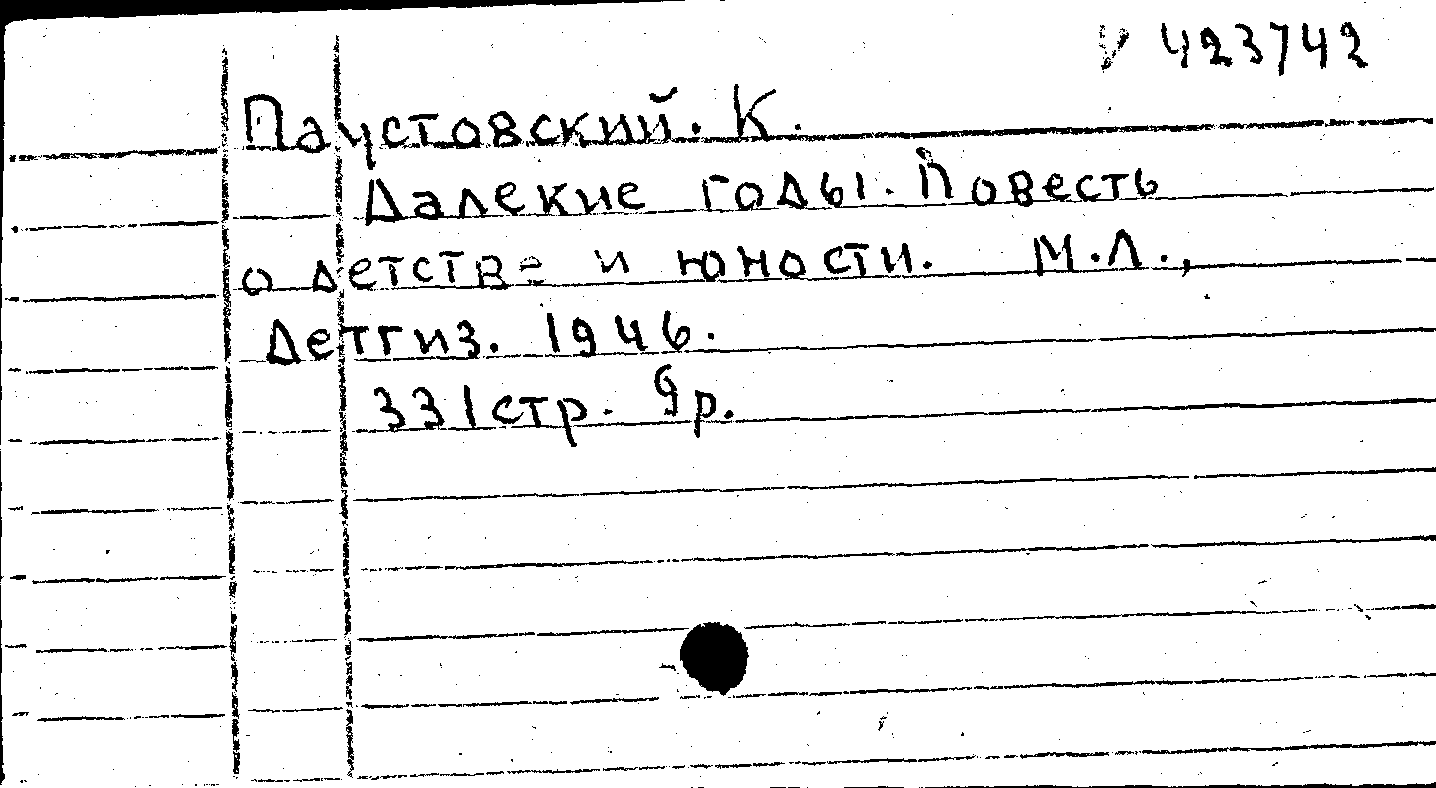 V 423742
Паустовский. К.
Далекие годы. Повесть
о детстве и юности. М.Л.,
Детгиз. 1946.
331 стр. 9р.